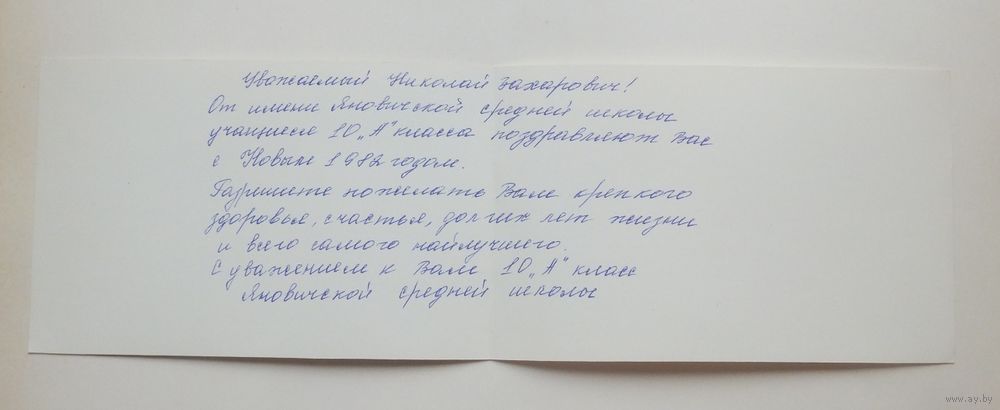 Уважаемый Николай Захарович!
От имени Яновичской средней школы
учащиеся 10 „А" класса поздравляют Вас
с Новым 1982 годом.
Разрешите пожелать Вам крепкого
здоровья, счастья, долгих лет жизни
и всего самого наилучшего.
С уважением к Вам 10 „А" класс
Яновичской средней школы
www.ay.by